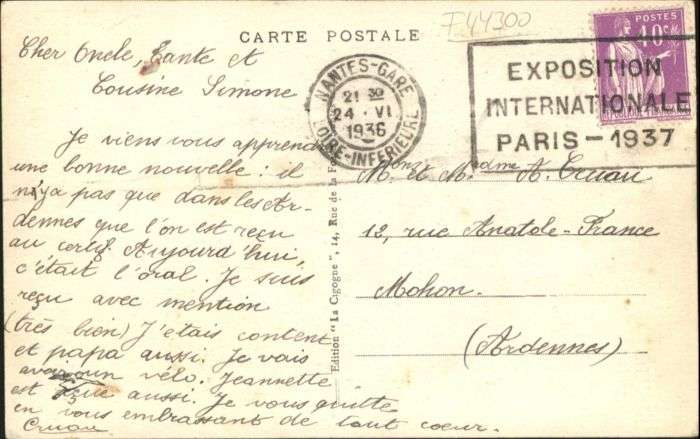 F44300
CARTE POSTALE
POSTES
40c
NANTES-GARE
21 30
24 - VI
1936
LOIRE-INFERIEURE
EXPOSITION
INTERNATIONALE
PARIS - 1937
Cher Oncle, Tante et
Cousine Simone
Je viens vous apprendre
une bonne nouvelle : il
n'ya pas que dans les Ar-
dennes que l'on est reçu
au certif. Aujourd'hui,
c'était l'oral. Je suis
reçu avec mention
(très bien) J'étais content
et papa aussi. Je vais
avoir un vélo. Jeannette
est reçue aussi. Je vous quitte
en vous embrassant de tout coeur.
Cruau
Edition "La Cigogne", 14, Rue de la
M. et Madame A. Cruau
12, rue Anatole-France
Mohon.
(Ardennes)